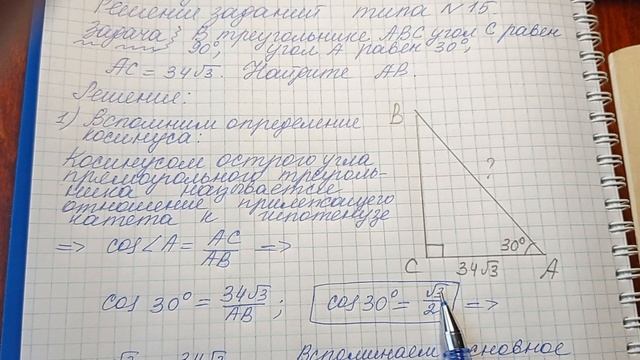 Решение заданий типа N 15
Задача: В треугольнике ABC угол C равен
90°, угол A равен 30°,
AC = 34√3. Найдите AB.
Решение:
1) Вспомним определение
косинуса:
Косинусом острого угла
прямоугольного треуголь-
ника называется
отношение прилежащего
катета к гипотенузе
=> cos∠A = AC/AB =>
cos 30° = 34√3/AB; cos 30° = √3/2 =>
Вспоминаем основное
B
?
30°
C 34√3 A